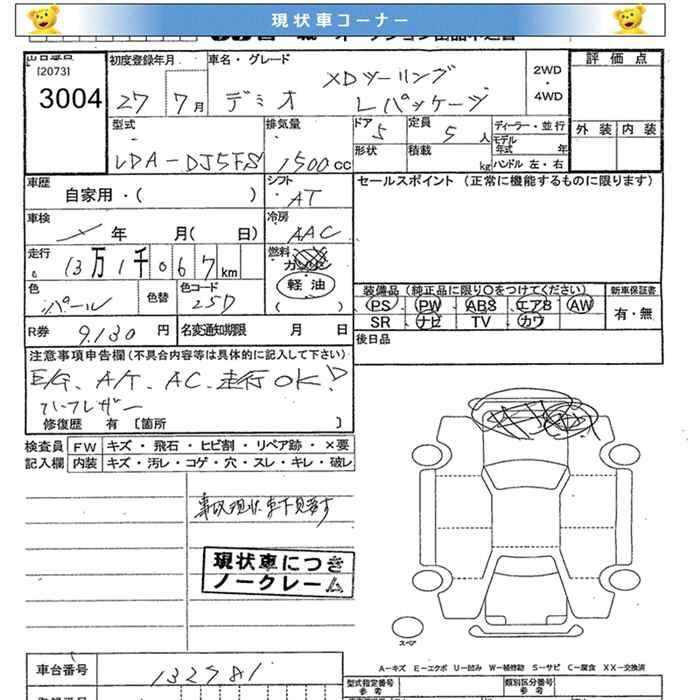 現状車コーナー
[2073]
3004
初度登録年月
27 7月
車名・グレード
デミオ
XDツーリング
Lパッケージ
2WD
・
4WD
評価点
外装 内装
型式
LDA-DJ5FS
排気量
1500cc
ドア 5
形状
定員 5人
積載 kg
ディーラー・並行
モデル年式 年
ハンドル 左・右
車歴
自家用・( )
シフト
AT
セールスポイント (正常に機能するものに限ります)
車検
年 月( 日)
冷房
AAC
走行
13万1千067km
燃料
ガソリン
軽油
( )
色
パール
色替
色コード
25D
装備品 (純正品に限り○をつけてください)
PS PW ABS エアB AW
SR ナビ TV カワ
新車保証書
有・無
R券 9,130円
名変通知期限 月 日
後日品
注意事項申告欄(不具合内容等は具体的に記入して下さい)
E/G、A/T、AC、走行OK!
ハーフレザー
修復歴 有 〔箇所 〕
検査員
記入欄
FW キズ・飛石・ヒビ割・リペア跡・×要
内装 キズ・汚レ・コゲ・穴・スレ・キレ・破レ
事故現状車下見要す
現状車につき
ノークレーム
スペア
A-キズ E-エクボ U-凹み W-補修跡 S-サビ C-腐食 XX-交換済
車台番号
132981
型式指定番号
参考
類別区分番号
参考